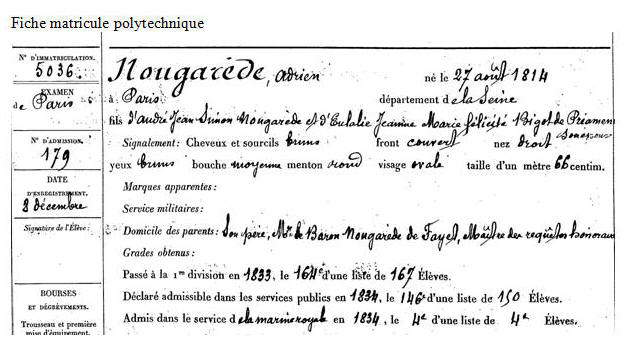 Fiche matricule polytechnique
N° D'IMMATRICULATION.
5036
EXAMEN
de Paris
N° D'ADMISSION.
179
DATE
D'ENREGISTREMENT.
8 décembre
Signature de l'Élève:
BOURSES
ET DÉGRÈVEMENTS.
Trousseau et première
mise d'équipement.
Nougarède, Adrien né le 27 août 1814
à Paris département de la Seine
fils d'André Jean Simon Nougarède et d'Eulalie Jeanne Marie félicité Bigot de Préameneu
Signalement: Cheveux et sourcils bruns front couvert nez droit
yeux bruns bouche moyenne menton rond visage ovale taille d'un mètre 66 centim.
Marques apparentes:
Service militaires:
Domicile des parents: Son père, Mr. le Baron Nougarède de Fayet, Maître des requêtes honoraire
Grades obtenus:
Passé à la 1re division en 1833, le 164e d'une liste de 167 Élèves.
Déclaré admissible dans les services publics en 1834, le 146e d'une liste de 150 Élèves.
Admis dans le service de la marine royale en 1834, le 4e d'une liste de 4e Élèves.